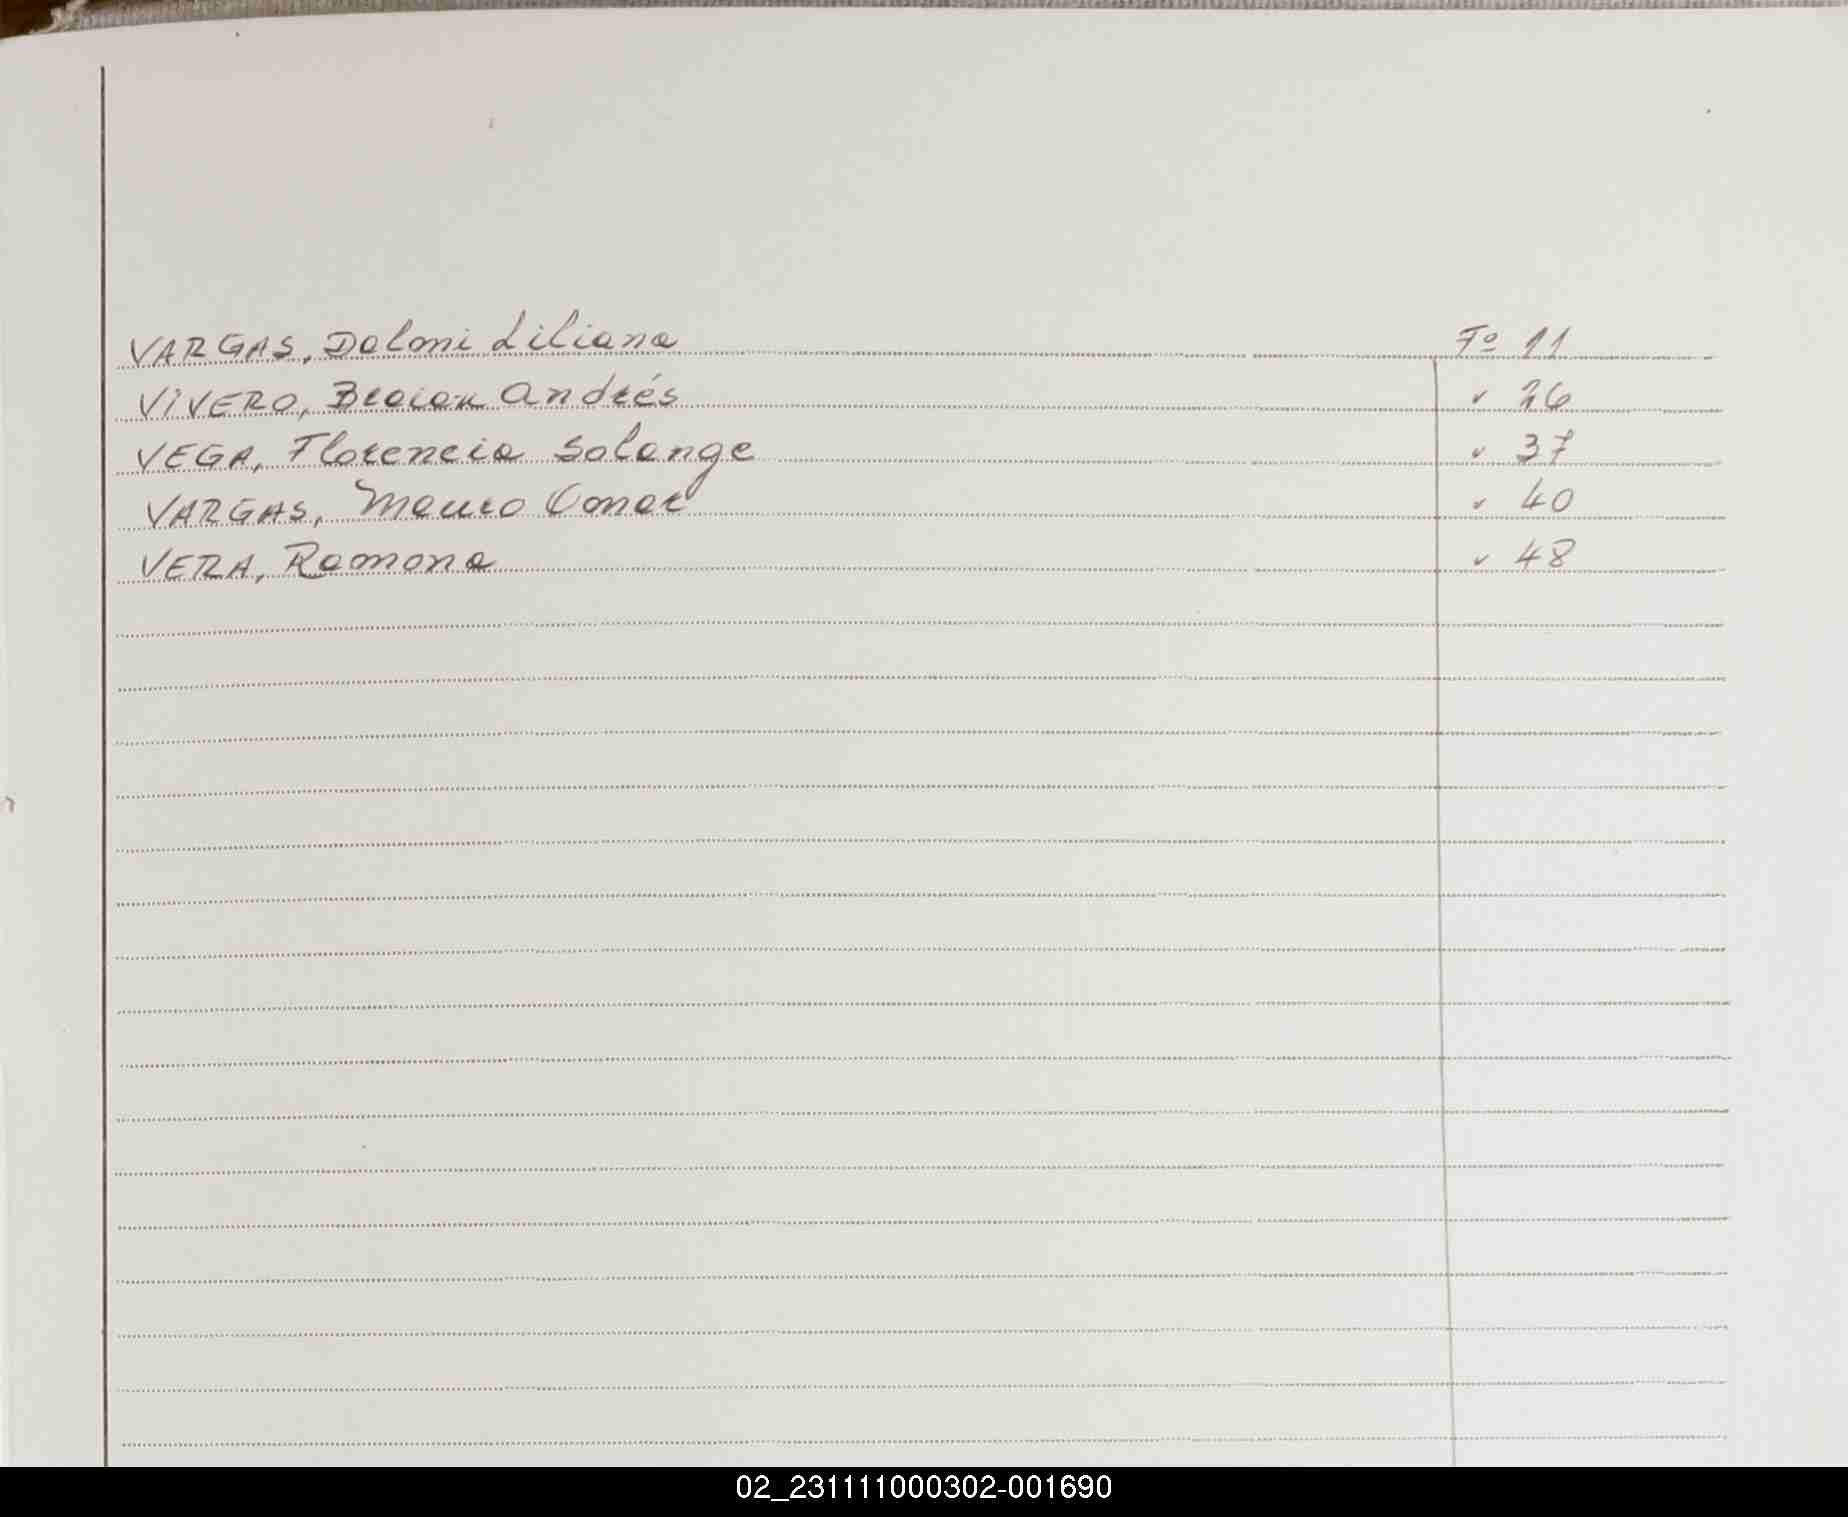 VARGAS, Dalmi Liliana Fº 11
VIVERO, Braian Andrés " 26
VEGA, Florencia Solange " 37
VARGAS, Mauro Omar " 40
VERA, Ramona " 48
02_231111000302-001690